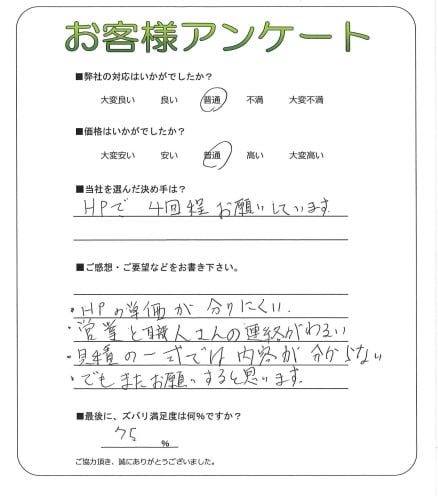 お客様アンケート
■弊社の対応はいかがでしたか？
大変良い 良い 普通 不満 大変不満
■価格はいかがでしたか？
大変安い 安い 普通 高い 大変高い
■当社を選んだ決め手は？
HPで 4回程お願いしています
■ご感想・ご要望などをお書き下さい。
・HPの単価が分りにくい.
・営業と職人さんの連絡がわるい
・見積の一式では内容が分からない
・でもまたお願いすると思います.
■最後に、ズバリ満足度は何％ですか？
75 %
ご協力頂き、誠にありがとうございました。